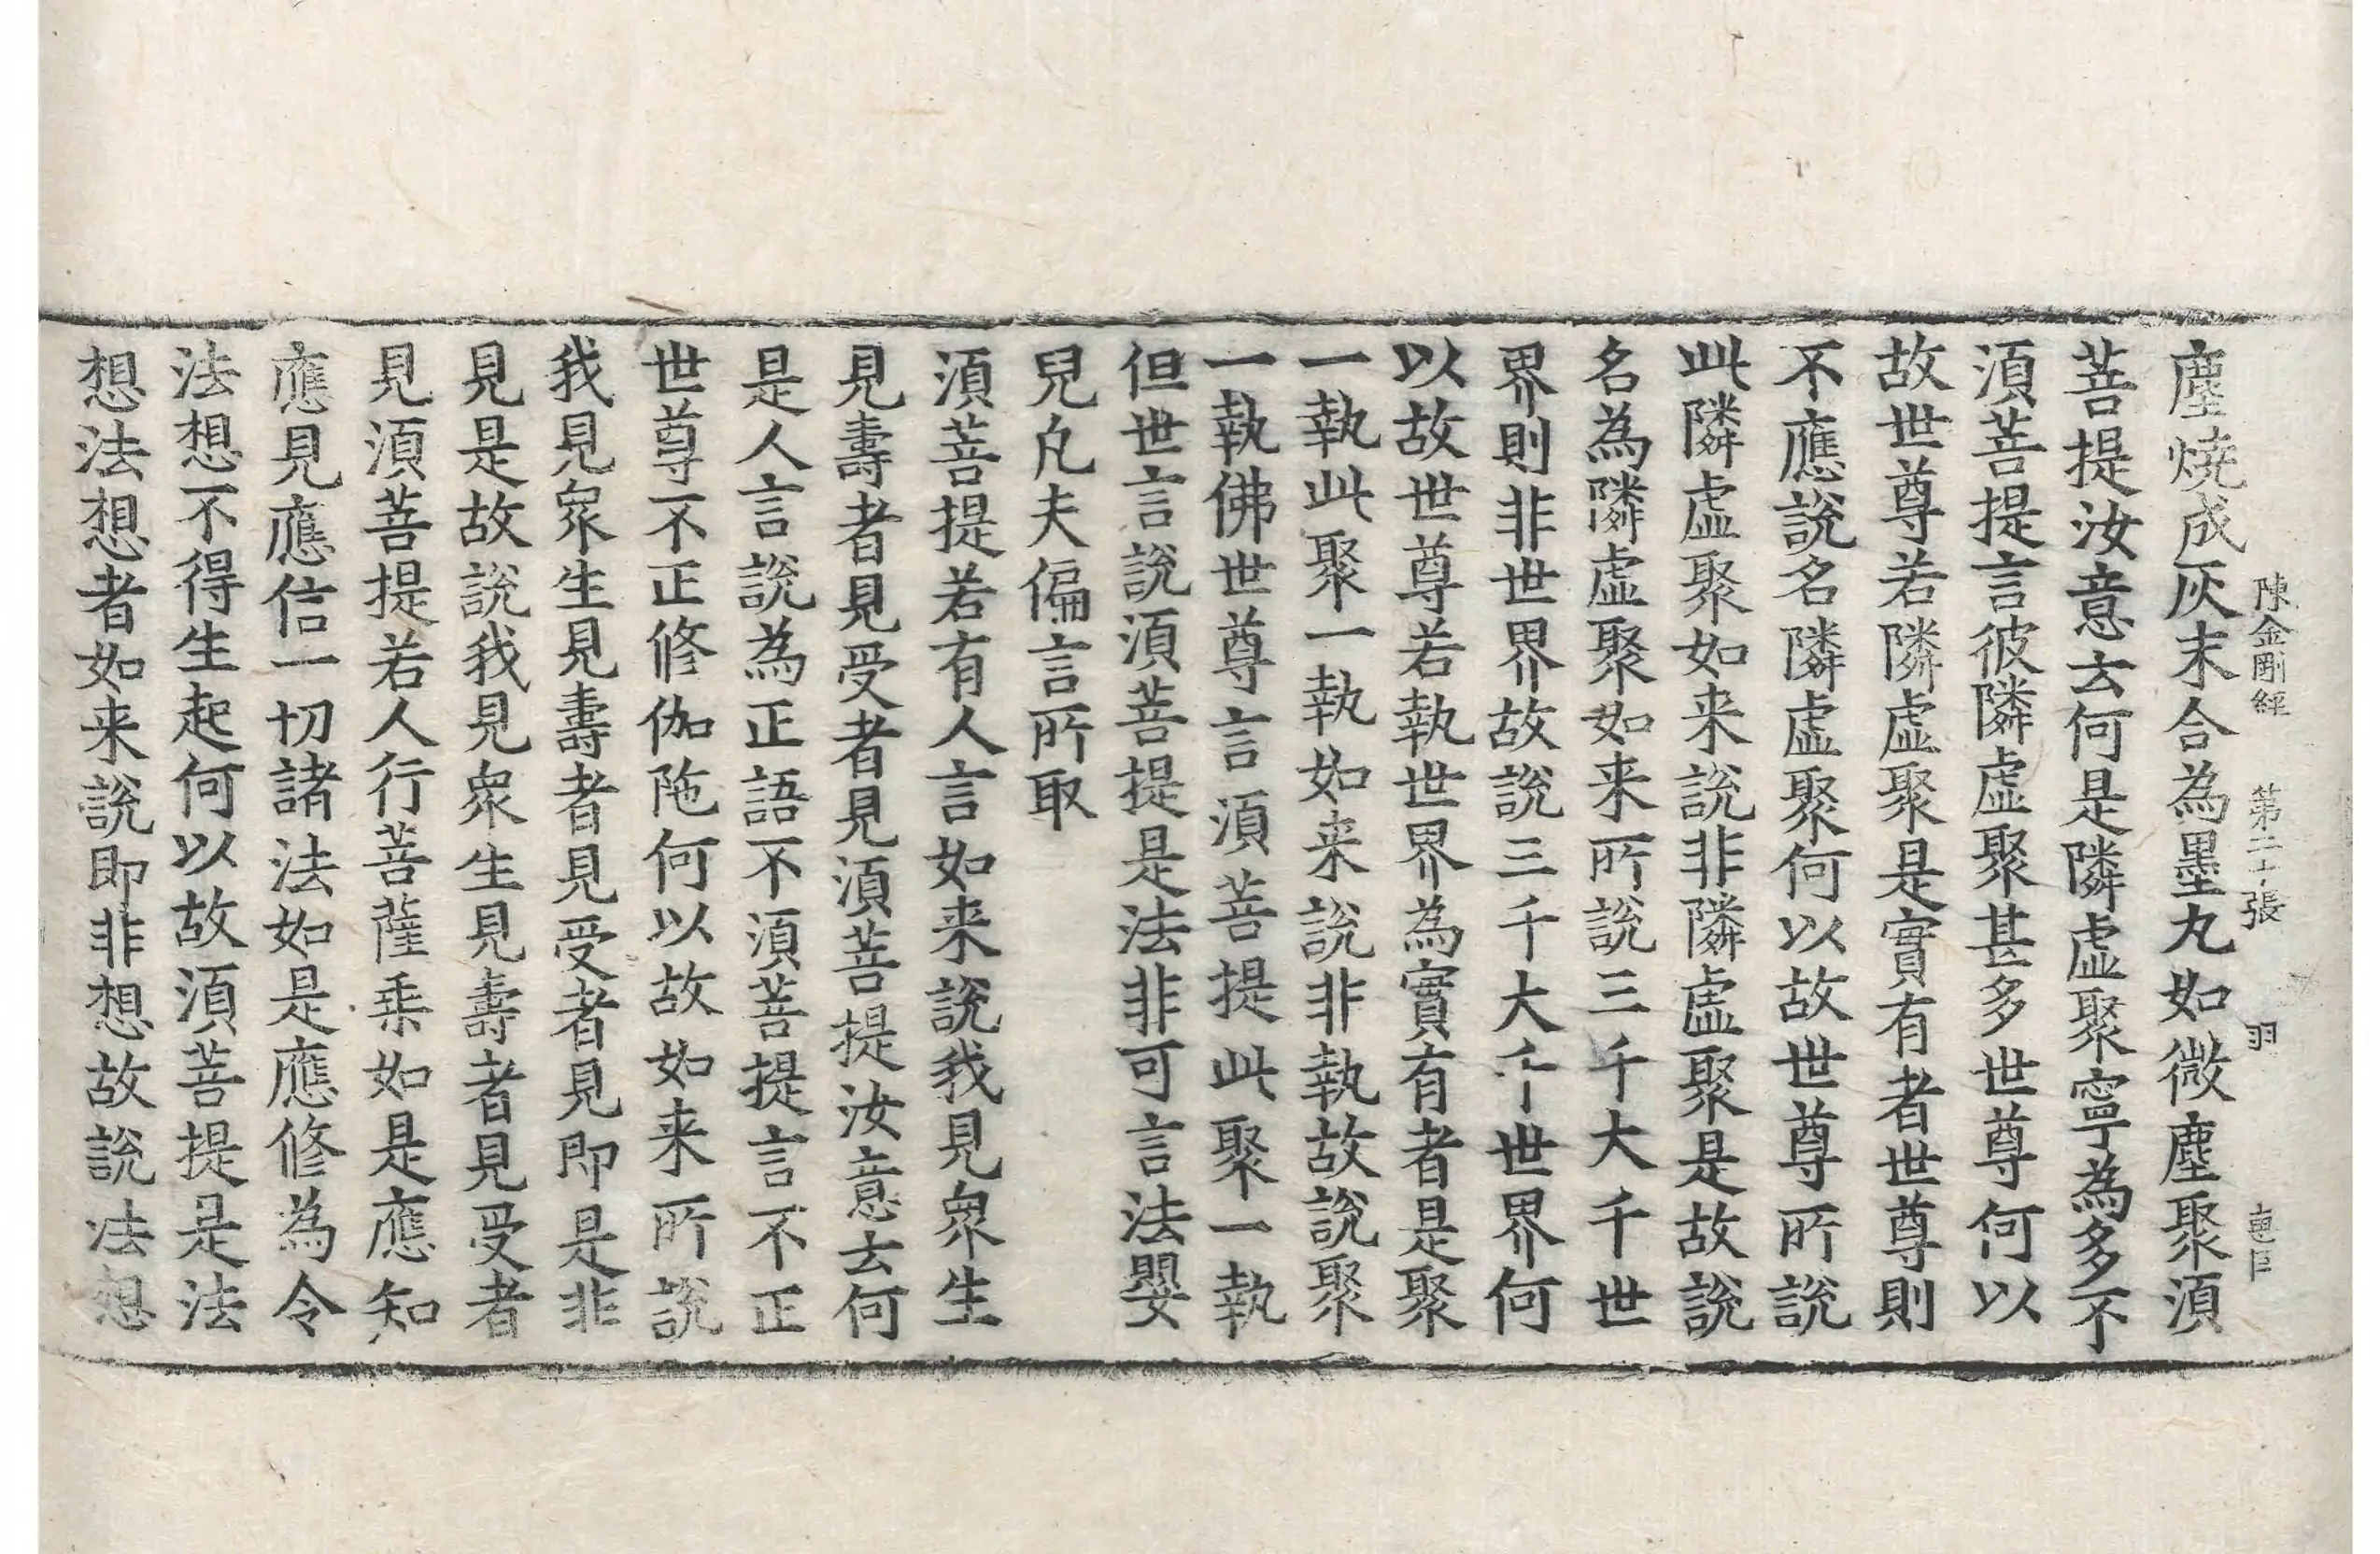 陳金剛經 第二十張 羽
塵燒成灰末合為墨丸如微塵聚湏
菩提汝意云何是隣虛聚寧為多不
湏菩提言彼隣虛聚甚多世尊何以
故世尊若隣虛聚是實有者世尊則
不應說名隣虛聚何以故世尊所說
此隣虛聚如来說非隣虛聚是故說
名為隣虛聚如来所說三千大千世
界則非世界故說三千大千世界何
以故世尊若執世界為實有者是聚
一執此聚一執如来說非執故說聚
一執佛世尊言湏菩提此聚一執
但世言說湏菩提是法非可言法嬰
兒凢夫偏言所取
湏菩提若有人言如来說我見衆生
見壽者見受者見湏菩提汝意云何
是人言說為正語不湏菩提言不正
世尊不正修伽陁何以故如来所說
我見衆生見壽者見受者見即是非
見是故說我見衆生見壽者見受者
見湏菩提若人行菩薩乗如是應知
應見應信一切諸法如是應修為令
法想不得生起何以故湏菩提是法
想法想者如来說即非想故說法想